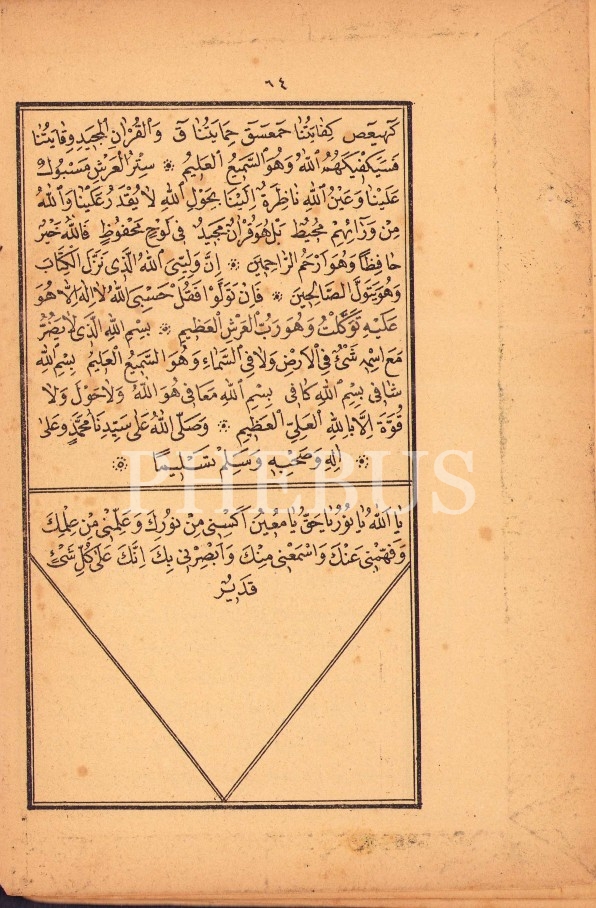 ٦٤
كهيعص كفايتنا حمعسق حمايتنا ق والقران المجيد وقايتنا
فسيكفيكهم الله وهو السميع العليم ۞ ستر العرش مسبول
علينا وعين الله ناظرة الينا بحول الله لا يقدر علينا والله
من ورائهم محيط بل هو قران مجيد في لوح محفوظ فالله خير
حافظا وهو ارحم الراحمين ۞ ان وليي الله الذي نزل الكتاب
وهو يتولى الصالحين ۞ فان تولوا فقل حسبي الله لا اله الا هو
عليه توكلت وهو رب العرش العظيم ۞ بسم الله الذي لا يضر
مع اسمه شئ في الارض ولا في السماء وهو السميع العليم بسم الله
شافي بسم الله كافي بسم الله معافي هو الله ولا حول ولا
قوة الا بالله العلي العظيم ۞ وصلى الله على سيدنا محمد وعلى
۞ اله وصحبه وسلم تسليما ۞
PHEBUS
يا الله يا نور يا حق يا معين اكسني من نورك وعلمني من علمك
وفهمني عنك واسمعني منك وابصرني بك انك على كل شئ
قدير